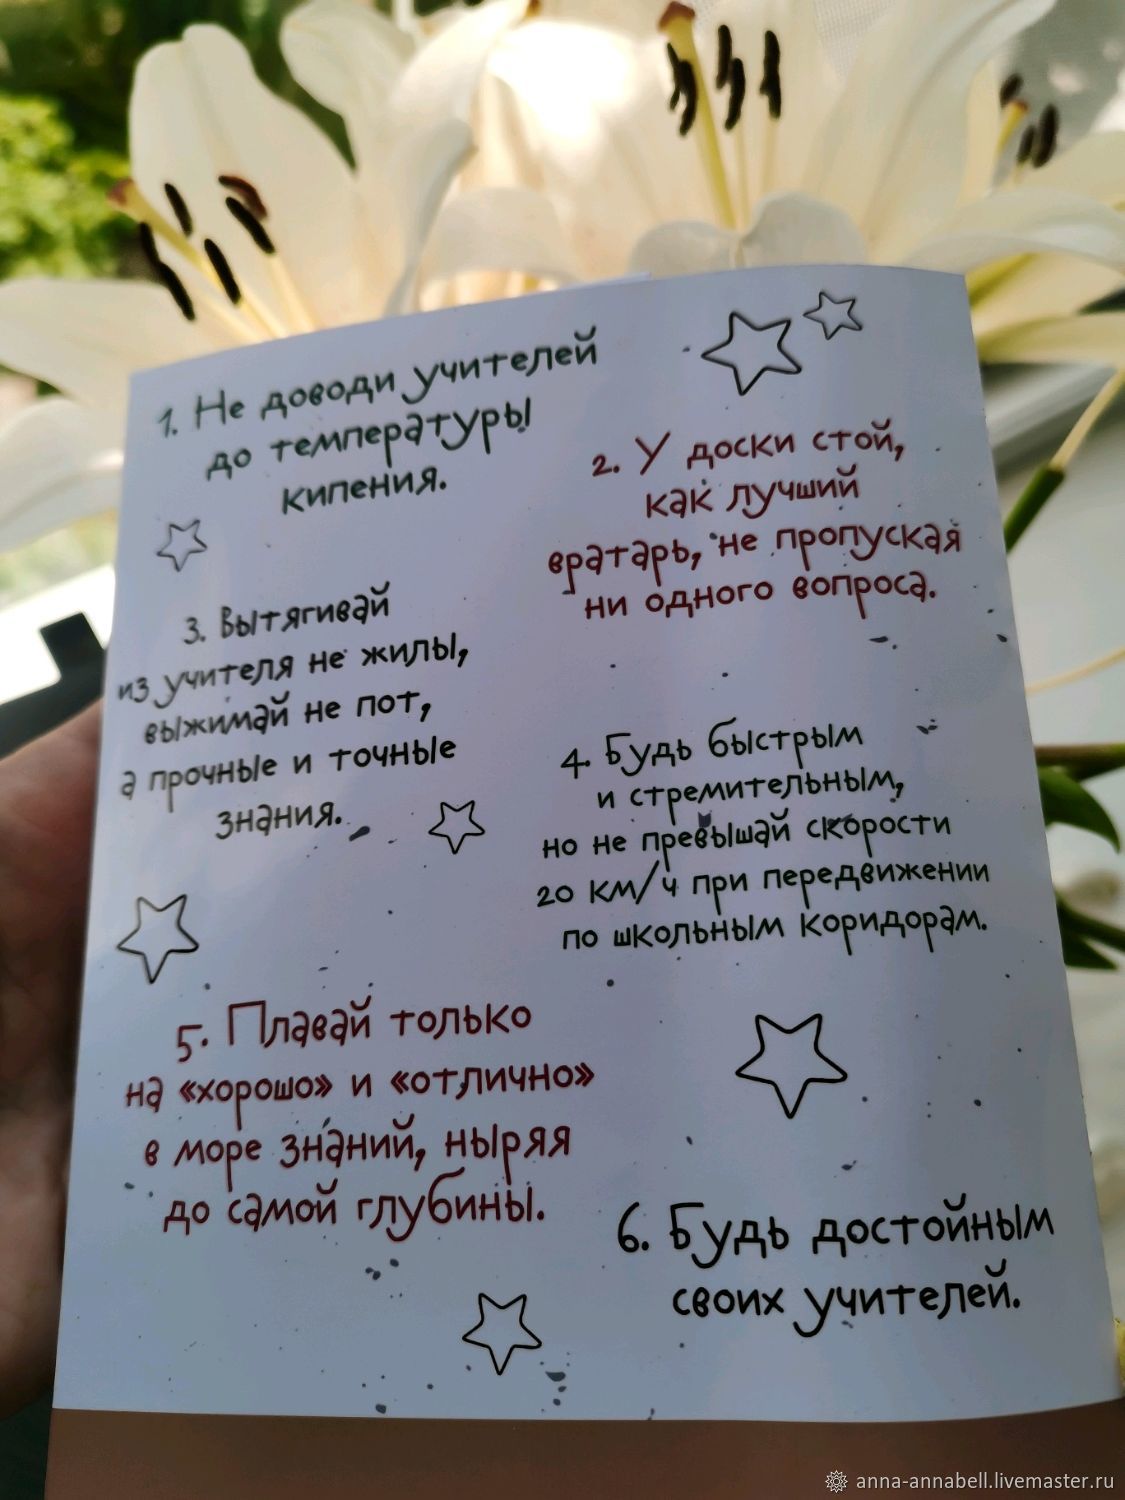 1. Не доводи учителей
до температуры
кипения.
2. У доски стой,
как лучший
вратарь, не пропуская
ни одного вопроса.
3. Вытягивай
из учителя не жилы,
выжимай не пот,
а прочные и точные
знания.
4. Будь быстрым
и стремительным,
но не превышай скорости
20 км/ч при передвижении
по школьным коридорам.
5. Плавай только
на «хорошо» и «отлично»
в море знаний, ныряя
до самой глубины.
6. Будь достойным
своих учителей.
anna-annabell.livemaster.ru